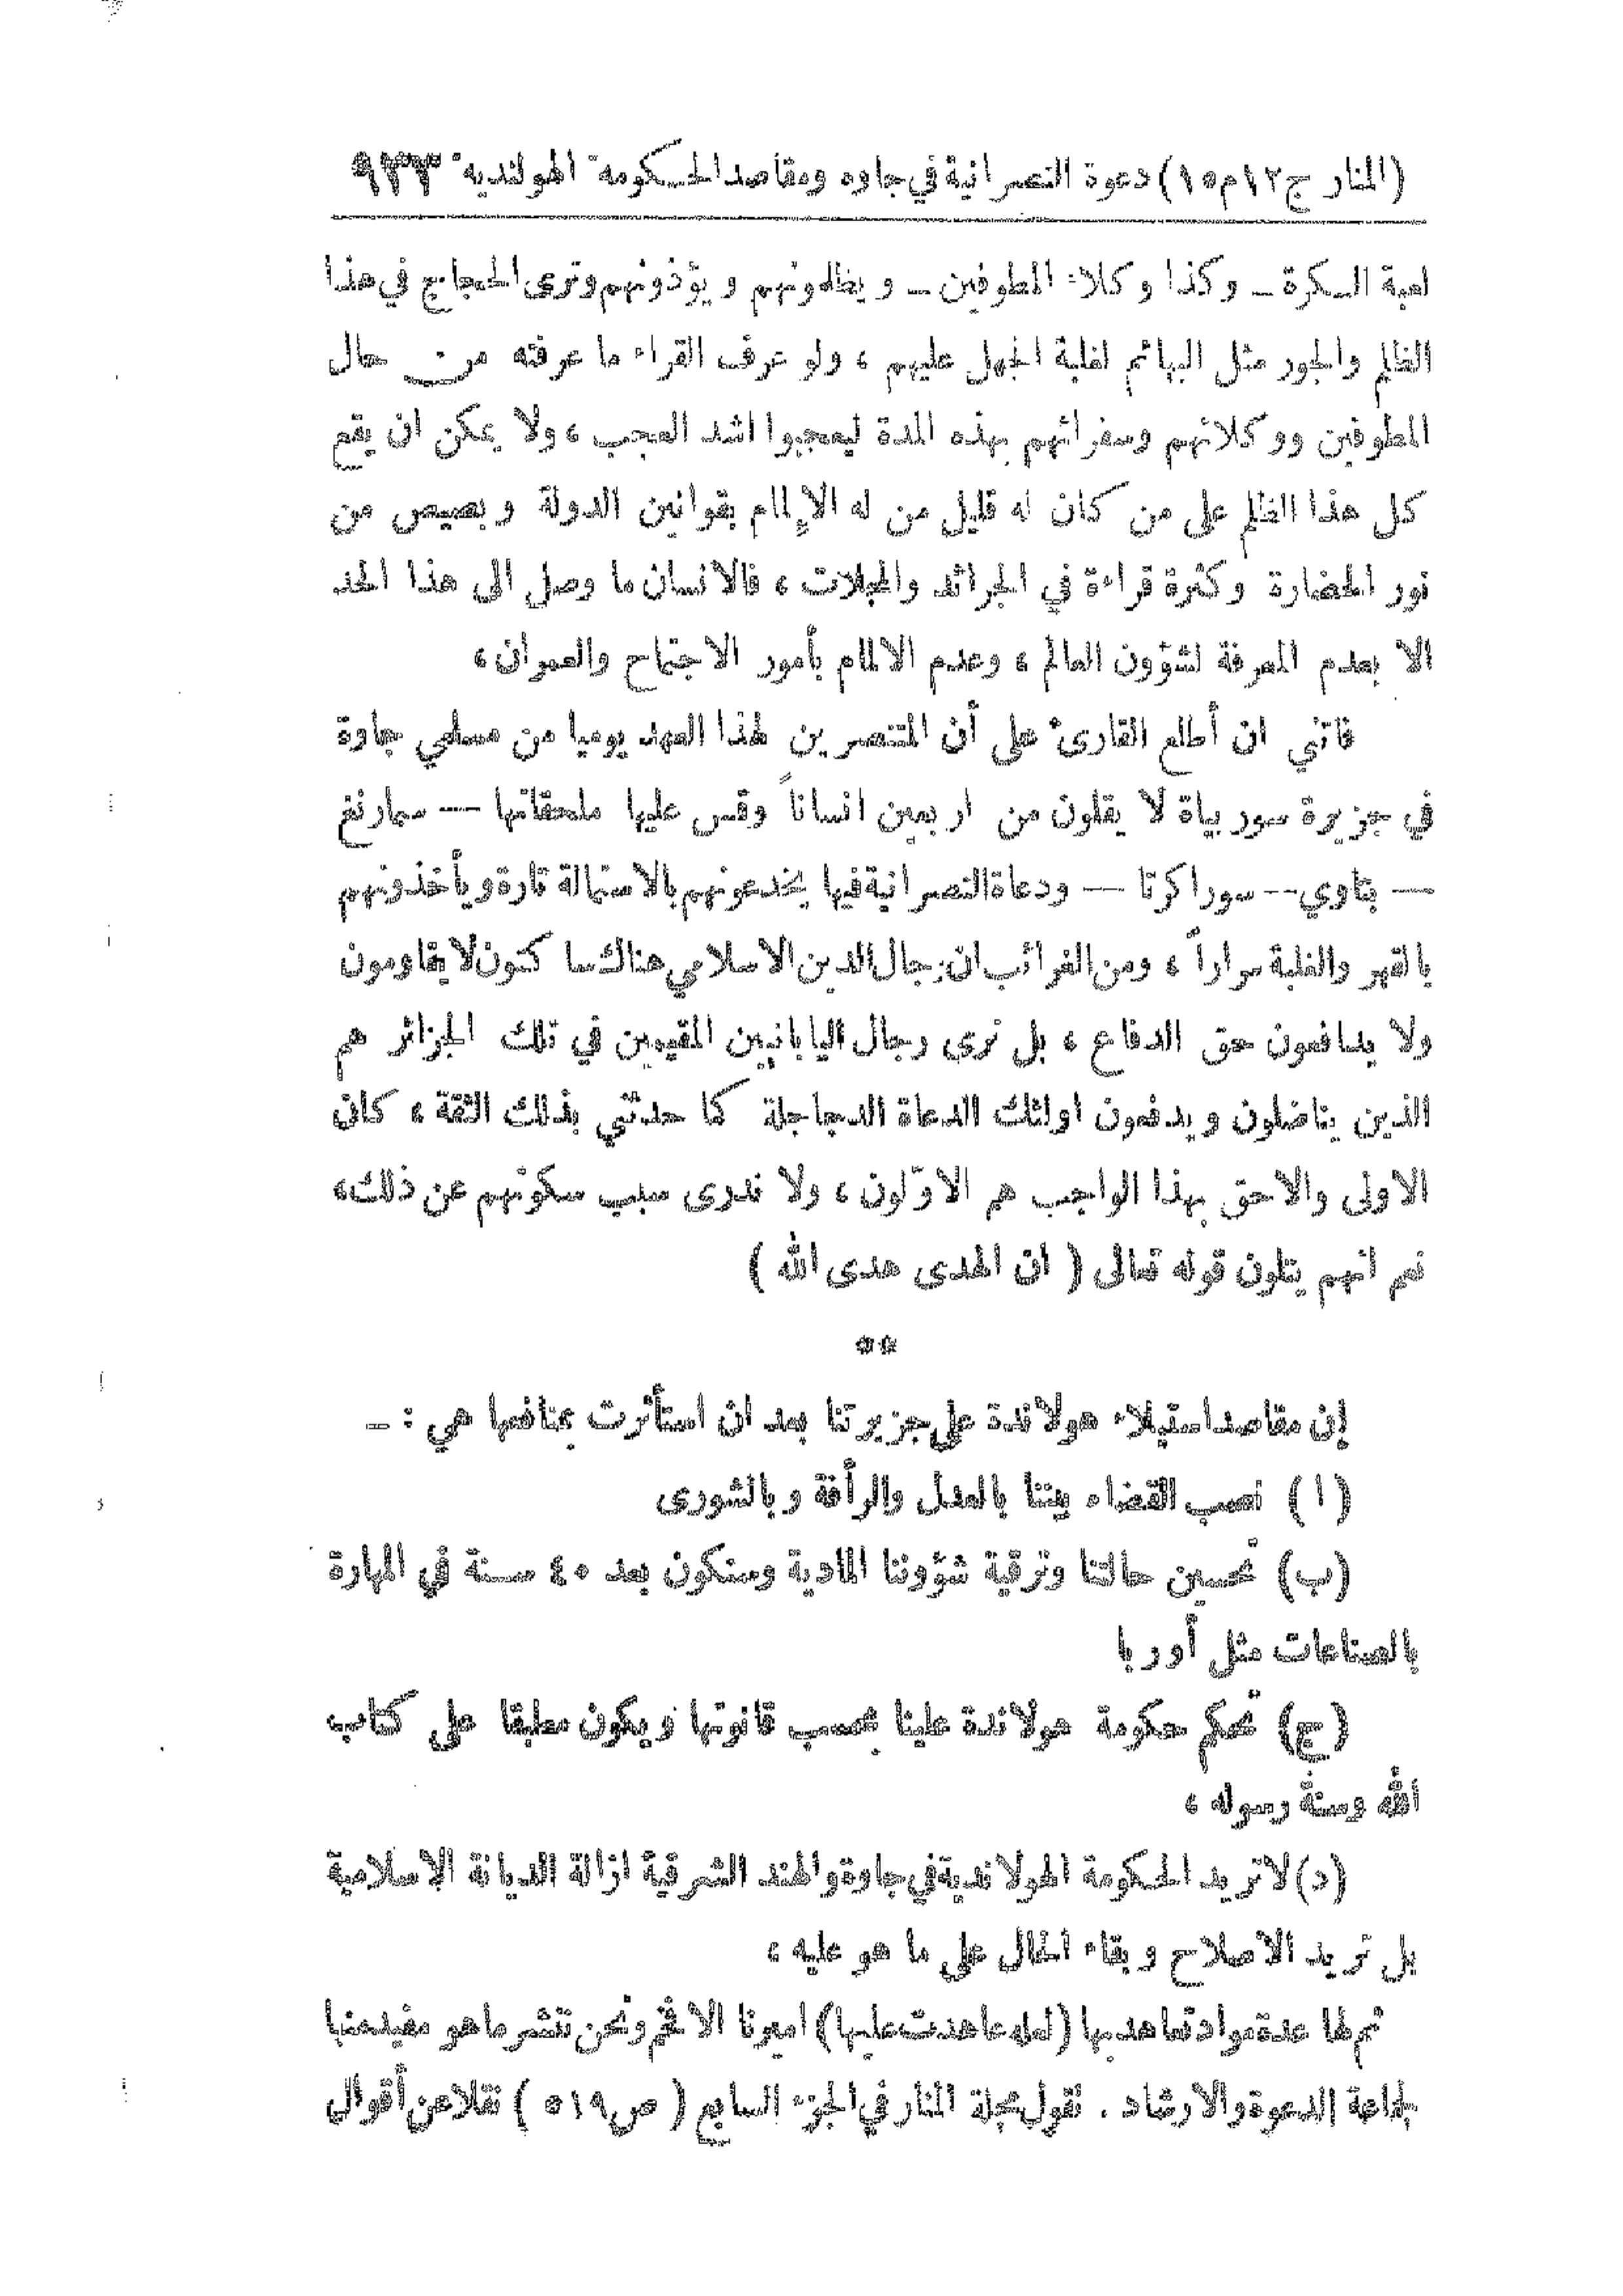 (المنار ج١٢م١٥) دعوة النصرانية في جاوه ومقاصد الحكومة الهولندية ٩٣٣
لعبة السكرة ـ وكذا وكلاء المطوفين ـ ويظلمونهم ويؤذونهم وترى الحجاج في هذا
الظلم والجور مثل البهائم لغلبة الجهل عليهم ، ولو عرف القراء ما عرفته من حال
المطوفين ووكلائهم وسفرائهم بهذه المدة ليعجبوا اشد العجب ، ولا يمكن ان يقع
كل هذا الظلم على من كان له قليل من له الإلمام بقوانين الدولة وبصيص من
نور الحضارة وكثرة قراءة في الجرائد والمجلات ، فالانسان ما وصل الى هذا الحد
الا بعدم المعرفة لشؤون العالم ، وعدم الالمام بأمور الاجتماع والعمران ،
فاتني ان أطلع القارئ على أن المتنصرين لهذا العهد يوميا من مسلمي جاوة
في جزيرة سورباية لا يقلون من اربعين انساناً وقس عليها ملحقاتها — سمارنغ
— بتاوي -- سوراكرتا — ودعاة النصرانية فيها يخدعونهم بالاستمالة تارة ويأخذونهم
بالقهر والغلبة مراراً ، ومن الغرائب ان رجال الدين الاسلامي هناك ساكتون لا يقاومون
ولا يدافعون حق الدفاع ، بل نرى رجال اليابانيين المقيمين في تلك الجزائر هم
الذين يناضلون ويدفعون اولئك الدعاة الدجاجلة كما حدثني بذلك الثقة ، كان
الاولى والاحق بهذا الواجب هم الاوّلون ، ولا ندرى سبب سكوتهم عن ذلك ،
نعم انهم يتلون قوله تعالى ( ان الهدى هدى الله )
**
إن مقاصد استيلاء هولاندة على جزيرتنا بعد ان استأثرت بمنافعها هي : ـ
(ا) نصب القضاء بيننا بالعدل والرأفة وبالشورى
(ب) تحسين حالتنا وترقية شؤوننا المادية وستكون بعد ٤٠ سنة في المهارة
بالصناعات مثل أوربا
(ج) تحكم حكومة هولاندة علينا بحسب قانونها ويكون مطبقا على كتاب
الله وسنة رسوله ،
(د) لا تريد الحكومة الهولاندية في جاوة والهند الشرقية ازالة الديانة الإسلامية
بل تريد الاصلاح وبقاء الحال على ما هو عليه ،
ثم لها عدة مواد تعاهد بها (لعله عاهدت عليها) اميرنا الافخم ونحن ننشر ما هو مفيد منها
لجماعة الدعوة والارشاد . تقول مجلة المنار في الجزء السابع ( ص ٥١٩ ) نقلا عن أقوال